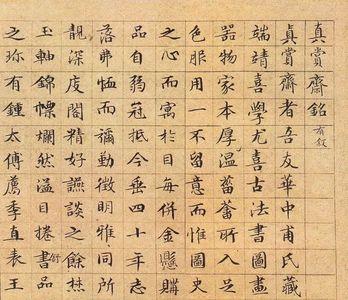 真賞齋銘有敘
真賞齋者吾友華中甫氏藏
端靖喜學尤喜古法書圖畫
器物家本厚温菑畬所入足
色服用一不留意而惟圖史
之心而寓於目每併金懸購
品自弱冠抵今垂四十年志
落弗恤而彌勤徵明雅同所
靚深庋閣精好讌談之餘焚
玉軸錦幖爛然溢目捲舒品
之珎有鍾太傅薦季直表王